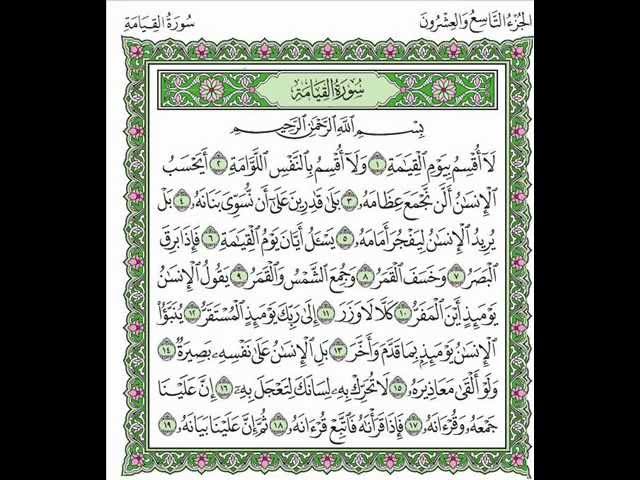 الجزء التاسع والعشرون
سورة القيامة
سُورَةُ القِيَامَةِ
بِسْمِ اللَّهِ الرَّحْمَٰنِ الرَّحِيمِ
لَآ أُقْسِمُ بِيَوْمِ الْقِيَٰمَةِ ١ وَلَآ أُقْسِمُ بِالنَّفْسِ اللَّوَّامَةِ ٢ أَيَحْسَبُ
الْإِنسَٰنُ أَلَّن نَّجْمَعَ عِظَامَهُۥ ٣ بَلَىٰ قَٰدِرِينَ عَلَىٰٓ أَن نُّسَوِّىَ بَنَانَهُۥ ٤ بَلْ
يُرِيدُ الْإِنسَٰنُ لِيَفْجُرَ أَمَامَهُۥ ٥ يَسْـَٔلُ أَيَّانَ يَوْمُ الْقِيَٰمَةِ ٦ فَإِذَا بَرِقَ
الْبَصَرُ ٧ وَخَسَفَ الْقَمَرُ ٨ وَجُمِعَ الشَّمْسُ وَالْقَمَرُ ٩ يَقُولُ الْإِنسَٰنُ
يَوْمَئِذٍ أَيْنَ الْمَفَرُّ ١٠ كَلَّا لَا وَزَرَ ١١ إِلَىٰ رَبِّكَ يَوْمَئِذٍ الْمُسْتَقَرُّ ١٢ يُنَبَّؤُا۟
الْإِنسَٰنُ يَوْمَئِذٍۭ بِمَا قَدَّمَ وَأَخَّرَ ١٣ بَلِ الْإِنسَٰنُ عَلَىٰ نَفْسِهِۦ بَصِيرَةٌ ١٤
وَلَوْ أَلْقَىٰ مَعَاذِيرَهُۥ ١٥ لَا تُحَرِّكْ بِهِۦ لِسَانَكَ لِتَعْجَلَ بِهِۦٓ ١٦ إِنَّ عَلَيْنَا
جَمْعَهُۥ وَقُرْءَانَهُۥ ١٧ فَإِذَا قَرَأْنَٰهُ فَاتَّبِعْ قُرْءَانَهُۥ ١٨ ثُمَّ إِنَّ عَلَيْنَا بَيَانَهُۥ ١٩